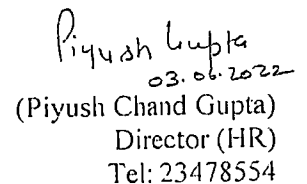 Piyush Gupta
03.06.2022
(Piyush Chand Gupta)
Director (HR)
Tel: 23478554